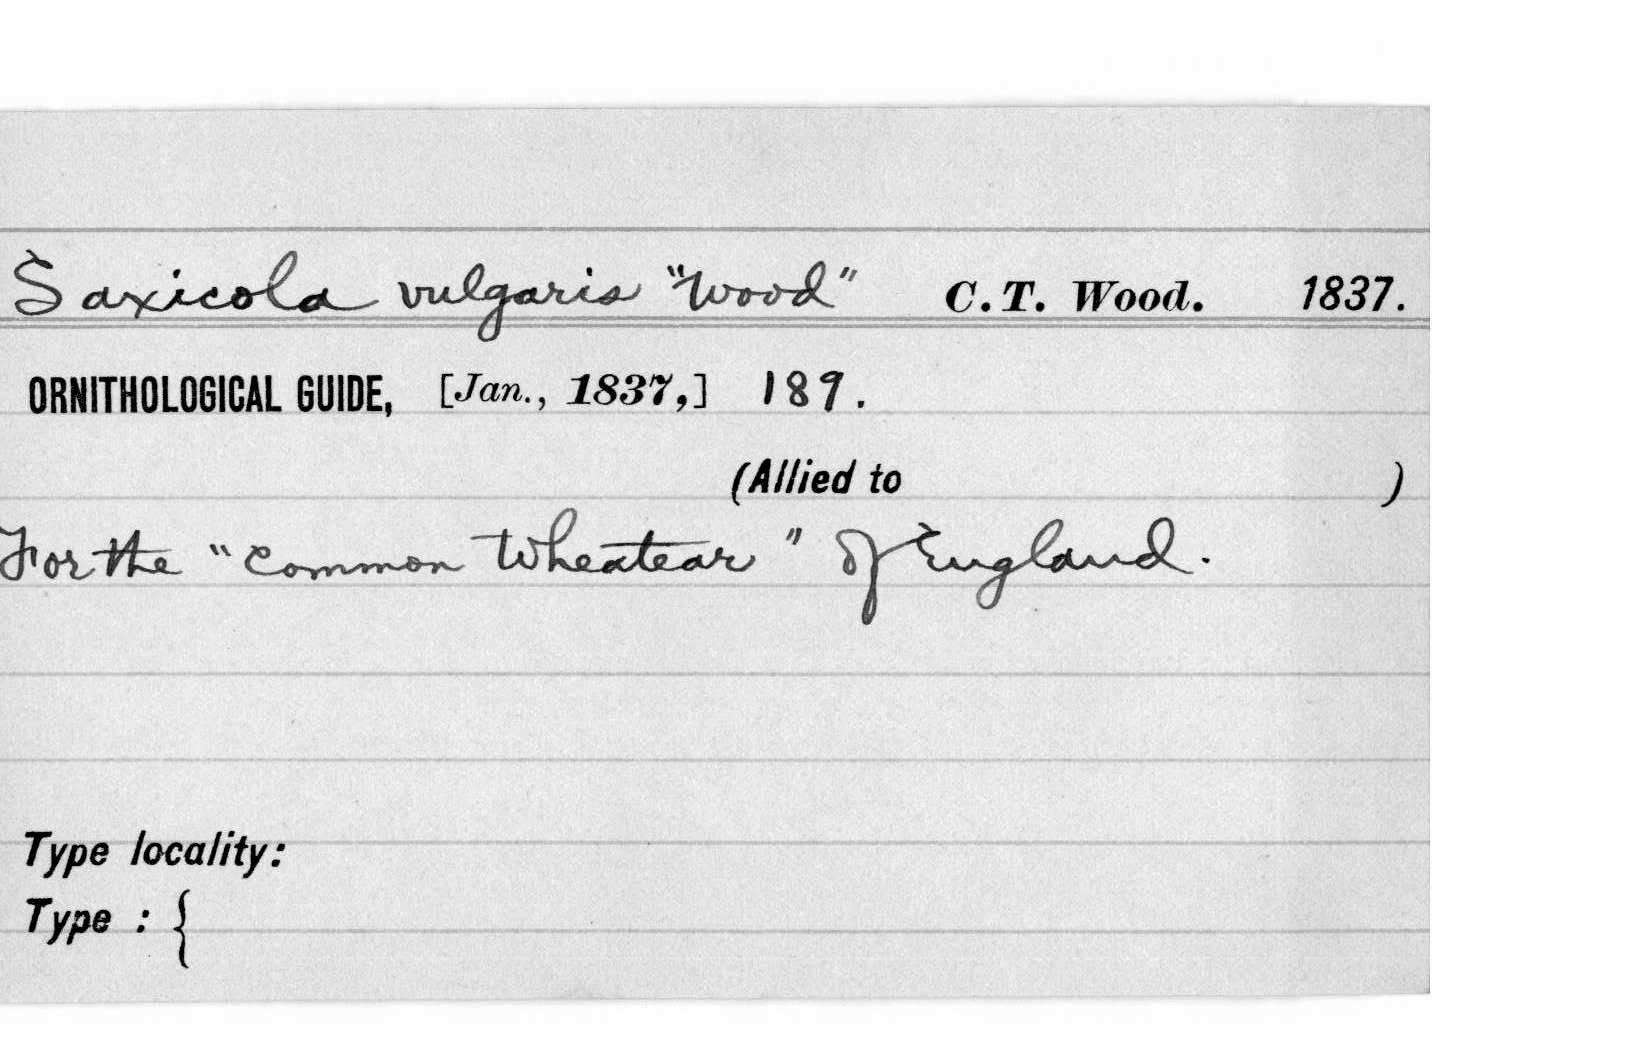 Saxicola vulgaris "Wood" C. T. Wood. 1837.
ORNITHOLOGICAL GUIDE, [Jan., 1837,] 189.
(Allied to )
For the "Common Wheatear" of England.
Type locality:
Type : {